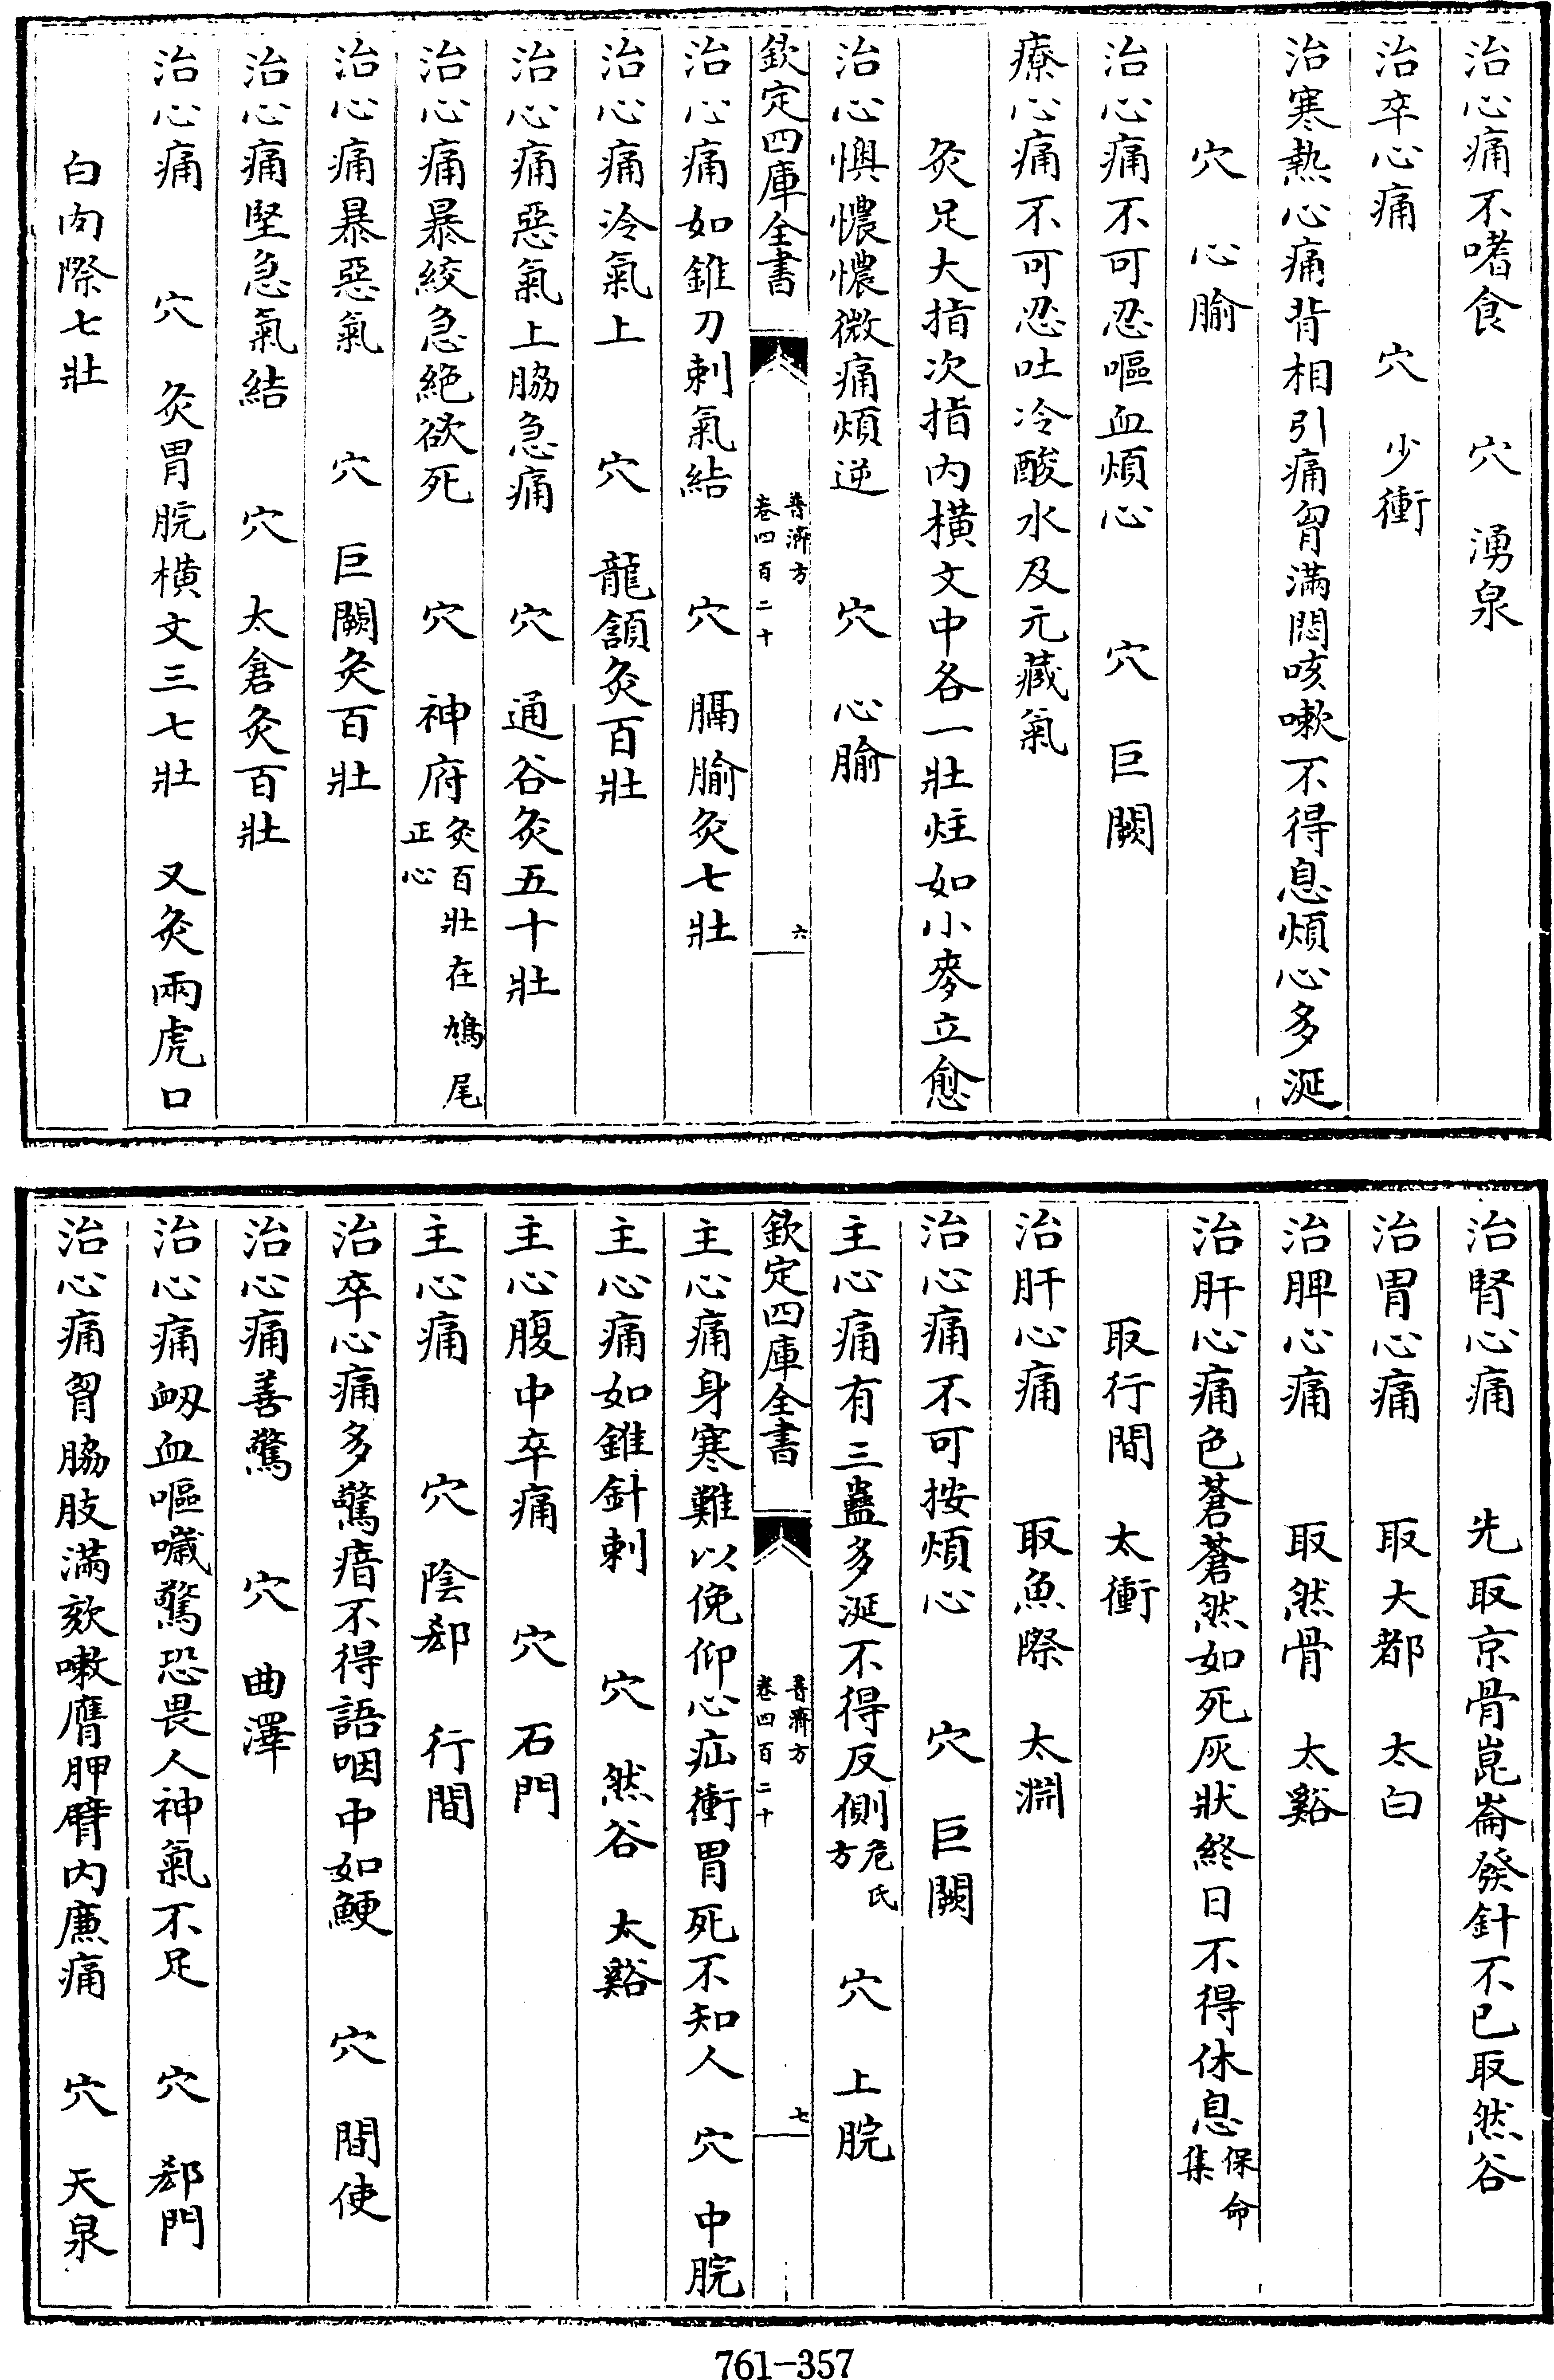 治心痛不嗜食　穴　湧泉
治卒心痛　穴　少衝
治寒熱心痛背相引痛胷滿悶咳嗽不得息煩心多涎
穴　心腧
治心痛不可忍嘔血煩心　穴　巨闕
療心痛不可忍吐冷酸水及元藏氣
灸足大指次指内横文中各一壯炷如小麥立愈
治心懊憹憹微痛煩逆　穴　心腧
欽定四庫全書　普濟方卷四百二十　六
治心痛如錐刀刺氣結　穴　膈腧灸七壯
治心痛冷氣上　穴　龍頷灸百壯
治心痛惡氣上脇急痛　穴　通谷灸五十壯
治心痛暴絞急絶欲死　穴　神府灸百壯在鳩尾正心
治心痛暴惡氣　穴　巨闕灸百壯
治心痛堅急氣結　穴　太倉灸百壯
治心痛　穴　灸胃脘横文三七壯　又灸兩虎口
白肉際七壯
治腎心痛　先取京骨崑崙發針不已取然谷
治胃心痛　取大都　太白
治脾心痛　取然骨　太谿
治肝心痛色蒼蒼然如死灰狀終日不得休息保命集
取行間　太衝
治肝心痛　取魚際　太淵
治心痛不可按煩心　穴　巨闕
主心痛有三蟲多涎不得反側危氏方　穴　上脘
欽定四庫全書　普濟方卷四百二十　七
主心痛身寒難以俛仰心疝衝胃死不知人　穴　中脘
主心痛如錐針刺　穴　然谷　太谿
主心腹中卒痛　穴　石門
主心痛　穴　陰郄　行間
治卒心痛多驚瘖不得語咽中如鯁　穴　間使
治心痛善驚　穴　曲澤
治心痛衂血嘔噦驚恐畏人神氣不足　穴　郄門
治心痛胷脇肢滿欬嗽膺胛臂内廉痛　穴　天泉
761-357